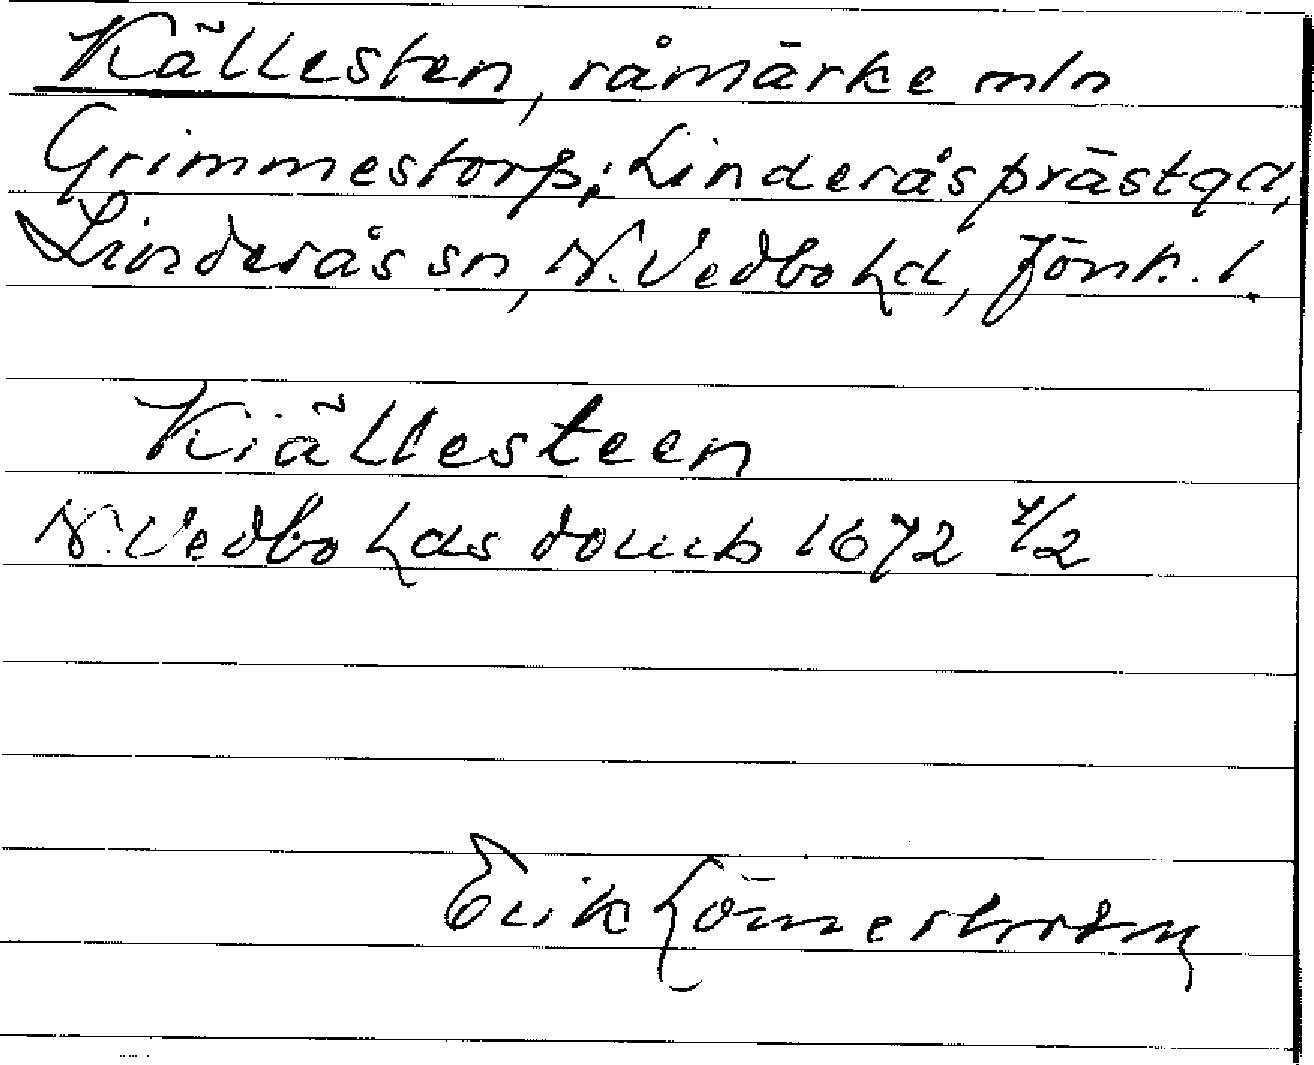 Källesten, råmärke mln
Grimmestorp; Linderås prästgd,
Linderås sn, N. Vedbo hd, Jönk. l.
Kiällesteen
N. Vedbo hds domb 1672 7/2
Erik